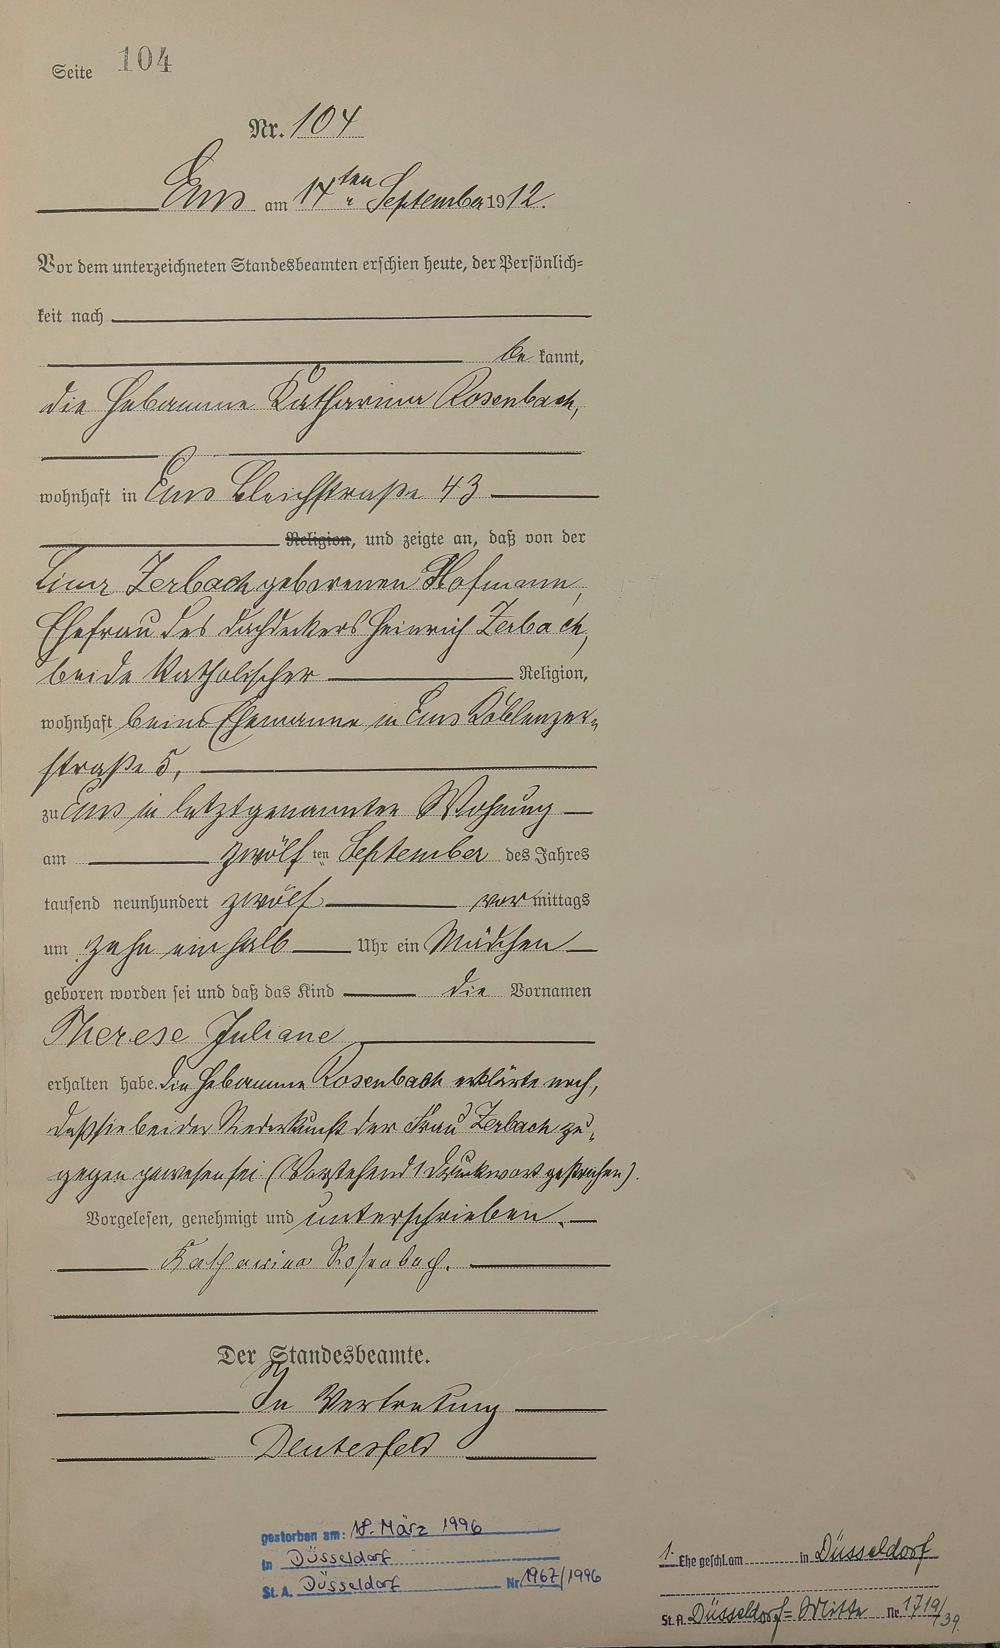 Seite 104
Nr. 104
Ems am 14ten September 1912.
Vor dem unterzeichneten Standesbeamten erschien heute, der Persönlich=
keit nach
be kannt,
die Hebamme Katharina Rosenbach,
wohnhaft in Ems Bleichstraße 43
Religion, und zeigte an, daß von der
Lina Zerbach geborenen Hofmann,
Ehefrau des Dachdeckers Heinrich Zerbach,
beide katholischer Religion,
wohnhaft beim Ehemanne in Ems Koblenzer=
straße 5,
zu Ems in letztgenannter Wohnung
am zwölf ten September des Jahres
tausend neunhundert zwölf vor mittags
um zehn ein halb Uhr ein Mädchen
geboren worden sei und daß das Kind die Vornamen
Therese Juliane
erhalten habe. Die Hebamme Rosenbach erklärte noch,
daß sie bei der Niederkunft der Frau Zerbach zu=
gegen gewesen sei (Vorstehend 1 Druckwort gestrichen).
Vorgelesen, genehmigt und unterschrieben.
Katharina Rosenbach.
Der Standesbeamte.
In Vertretung
gestorben am: 18. März 1996
in Düsseldorf
St.A. Düsseldorf Nr. 1967/1996
1. Ehe geschl. am in Düsseldorf
St.A. Düsseldorf=Mitte Nr. 1719/39.